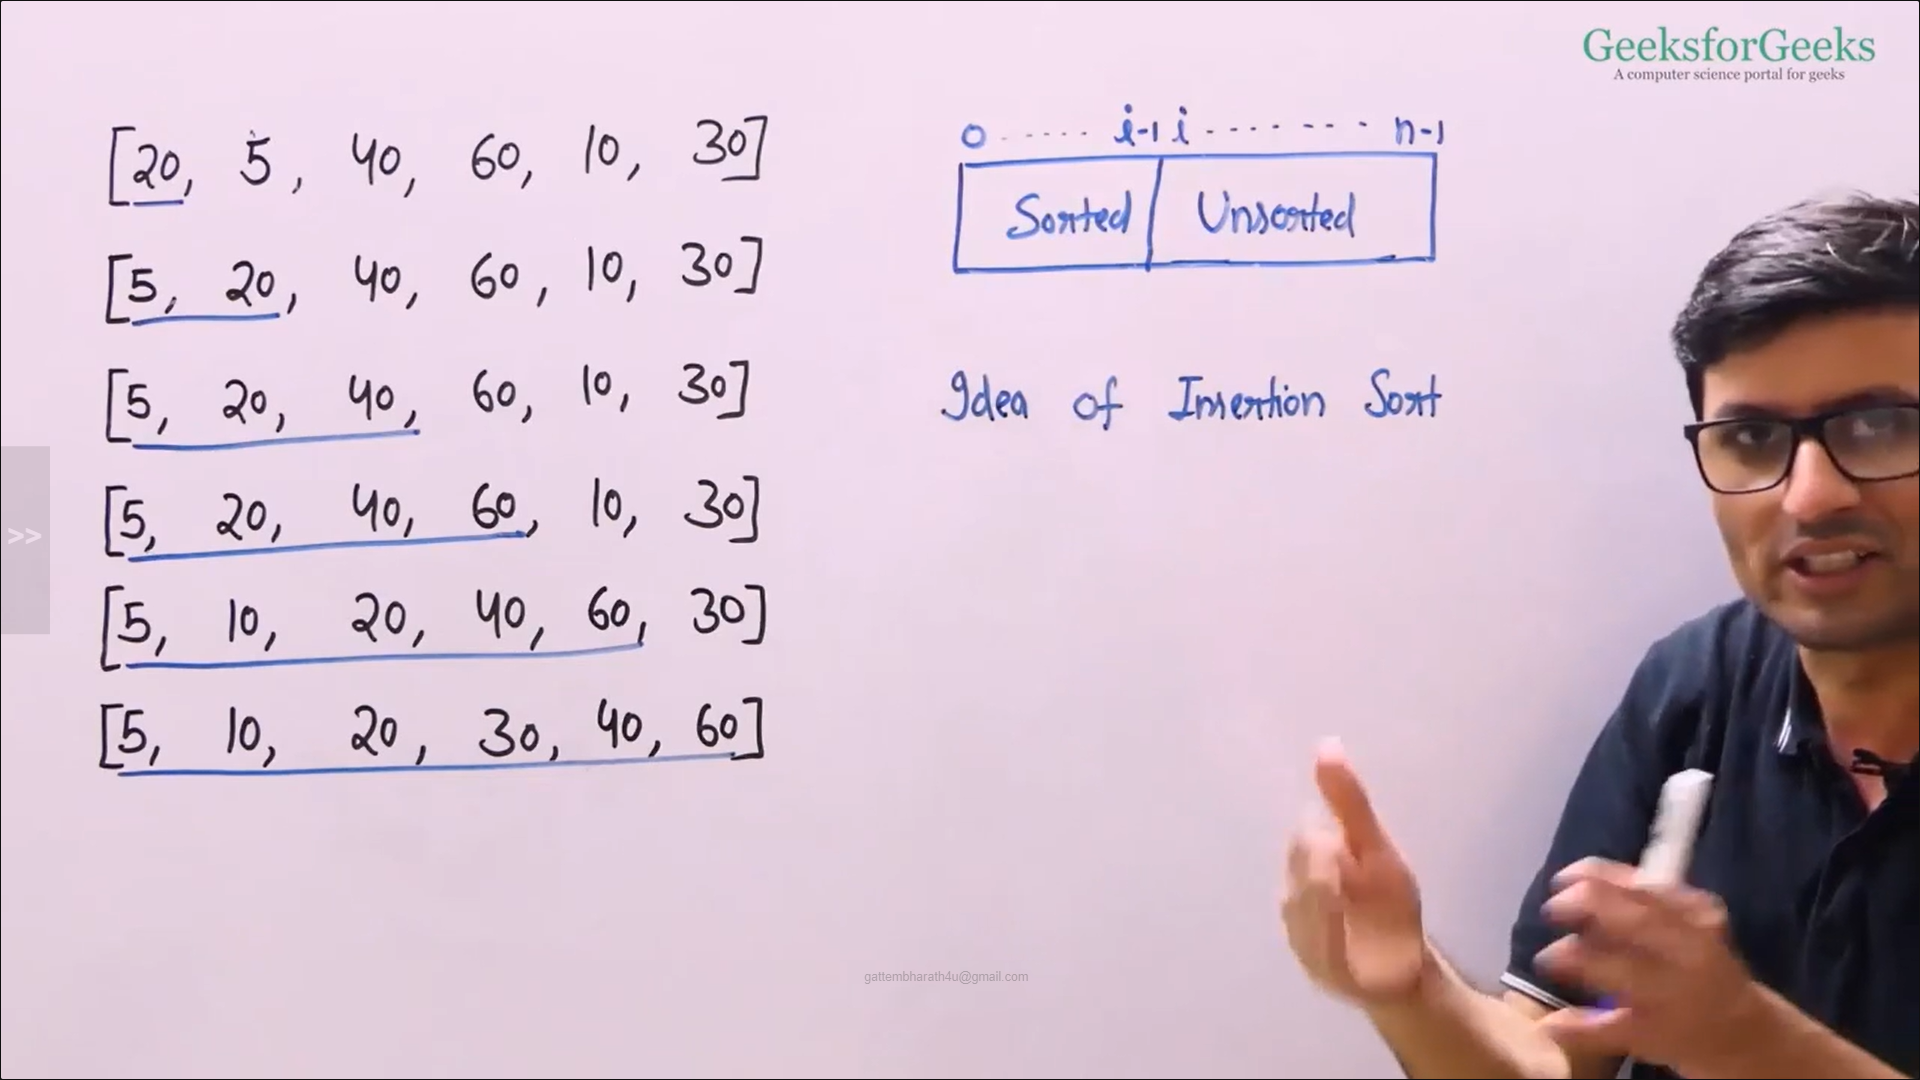 GeeksforGeeks
A computer science portal for geeks
[20, 5, 40, 60, 10, 30]
[5, 20, 40, 60, 10, 30]
[5, 20, 40, 60, 10, 30]
[5, 20, 40, 60, 10, 30]
[5, 10, 20, 40, 60, 30]
[5, 10, 20, 30, 40, 60]
0 ..... i-1 i ....... n-1
Sorted Unsorted
Idea of Insertion Sort
>>
gattembharath4u@gmail.com